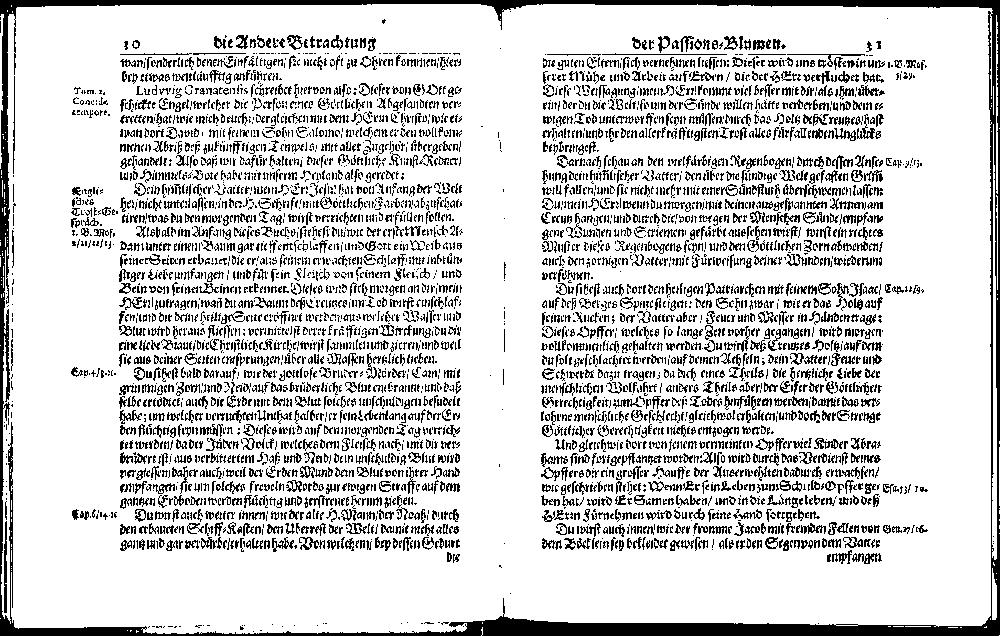 30 die Andere Betrachtung
wan/sonderlich denen Einfältigen/ sie nicht oft zu Ohren kommen/hier-
bey etwas weitläufftig anführen.
Tom. 2.
Conc
tempore.
Ludvvig Granatensis schreibet hiervon also: Dieser von GOtt ge-
schickte Engel/welcher die Person eines Göttlichen Abgesandten ver-
tretten/hat/wie mich deucht/dergleichen mit dem HErrn Christo/wie et-
wan dort David/ mit seinem Sohn Salomo/welchem er den vollkom-
menen Abriß deß zukünfftigen Tempels/mit aller Zugehör/übergeben/
gehandelt: Also daß wir dafür halten/ dieser Göttliche Kunst-Redner/
und Himmels-Bote habe mit unserm Heyland also geredet:
Engli-
sches
Trost-Ge-
spräch.
1. B. Mos.
2/21/22/23.
Dein himlischer Vatter/mein HErr Jesu/ hat von Anfang der Welt
her/nicht unterlassen/in der H. Schrift/mit Göttlichen Farben abzuschat-
tiren/was du den morgenden Tag/ wirst verrichten und erfüllen sollen.
Alsbald im Anfang dieses Buchs/siehest du/wie der erste Mensch A-
dam unter einem Baum gar eifft entschlaffen/und Gott ein Weib aus
seiner Seiten erbauet/die er/aus seinem erwachten Schlaff/mit inbrün-
stiger Liebe umfangen/ und für sein Fleisch von seinem Fleisch/ und
Bein von seinen Beinen erkennet. Dieses wird sich morgen an dir/mein
HErr/zutragen/wañ du am Baum deß Creutzes/im Tod wirst einschlaf-
fen/und dir deine heilige Seite eröffnet werden/aus welcher Wasser und
Blut wird heraus fliessen: vermittelst derer kräfftigen Wirckung/du dir
eine liebe Braut/die Christliche Kirche/wirst samlen und zieren/und weil
sie aus deiner Seiten entsprungen/über alle Massen hertzlich lieben.
Cap. 4/8.11.
Du sihest bald darauf/ wie der gottlose Bruder-Mörder/Cain/ mit
grimmigen Zorn/und Neid/auf das brüderliche Blut entbrannt/und daß
selbe ertödtet/ auch die Erde mit dem Blut solches unschuldigen besudelt
habe: um welcher verruchten Unthat halber/er sein Lebenlang auf der Er-
den flüchtig seyn müssen: Dieses wird auf den morgenden Tag verrich-
tet werden/ da der Jüden Volck/ welches dem Fleisch nach/ mit dir ver-
brüdert ist/ aus verbittertem Haß und Neid/dein unschuldig Blut wird
vergiessen/daher auch/weil der Erden Mund dein Blut von ihrer Hand
empfangen/ sie um solches freveln Mords/zu ewigen Straffe auf dem
gantzen Erdboden werden flüchtig und zerstreuet herum ziehen.
Cap. 6/14.
Du wirst auch weiter innen/ wie der alte H. Mann/der Noah/ durch
den erbaueten Schiff-Kasten/ den Uberrest der Welt/damit nicht alles
gantz und gar verdürbe/erhalten habe. Von welchem/ bey dessen Geburt
die
der Passions-Blumen. 31
die guten Eltern/sich vernehmen liessen: Dieser wird uns trösten in un-
1. B. Mos.
5/29.
serer Mühe und Arbeit auf Erden/ die der HErr verfluchet hat.
Diese Weissagung/mein HErr/komt viel besser mit dir/als ihm/über-
ein/der du die Welt/so um der Sünde willen hätte verderben/und dem e-
wigen Tod unterworffen seyn müssen/durch das Holtz deß Creutzes/hast
erhalten/und ihr den allerkräfftigsten Trost/alles fürfallenden Unglücks
beybringest.
Cap. 9/13.
Darnach schau an den vielfärbigen Regenbogen/durch dessen Anse-
hung dein himlischer Vatter/den über die sündige Welt gefasten Griſſi
will fallen/und sie nicht mehr mit einer Sündfluth überschwemmen lassen:
Du/mein HErr/wenn du morgen/mit deinen ausgespannten Armen/am
Creutz hangen/und durch die/von wegen der Menschen Sünde/empfan-
gene Wunden und Striemen/ gefärbt aussehen wirst/ wirst ein rechtes
Muster dieses Regenbogens seyn/und den Göttlichen Zorn abwenden/
auch den zornigen Vatter/mit Fürweisung deiner Wunden/wiederum
versöhnen.
Cap. 22/9.
Du sihest auch dort den heiligen Patriarchen mit seinem Sohn Isaac/
auf deß Berges Spitze steigen: den Sohn zwar/ wie er das Holtz auf
seinen Rucken; der Vatter aber/ Feuer und Messer in Händen trage:
Dieses Opffer/ welches so lange Zeit vorher gegangen/ wird morgen
vollkommentlich gehalten werden. Du wirst deß Creutzes Holtz/auf dem
du solt geschlachtet werden/auf deinen Achseln; dein Vatter/Feuer und
Schwerdt dazu tragen; da dich eines Theils/ die hertzliche Liebe der
menschlichen Wolfahrt/ anders Theils aber/der Eifer der Göttlichen
Gerechtigkeit/zum Opffer deß Todes hinführen werden/damit das ver-
lohrne menschliche Geschlecht/gleichwol erhalten/und doch der Strenge
Göttlicher Gerechtigkeit nichts entzogen werde.
Und gleichwie dort von jenem vermeinten Opffer viel Kinder Abra-
hams sind fortgepflantzet worden: Also wird durch das Verdienst deines
Opffers dir ein grosser Hauffe der Auserwehlten dadurch erwachsen/
wie geschrieben stehet: Wenn Er sein Leben zum Schuld-Opffer ge-
Esa. 53/ 10.
ben hat/ wird Er Samen haben/ und in die Länge leben/ und deß
HErrn Fürnehmen wird durch seine Hand fortgehen.
Du wirst auch innen/wie der fromme Jacob mit fremden Fellen von
Gen. 27/16.
dem Böcklein sey bekleidet gewesen/ als er den Segen von dem Vatter
empfangen